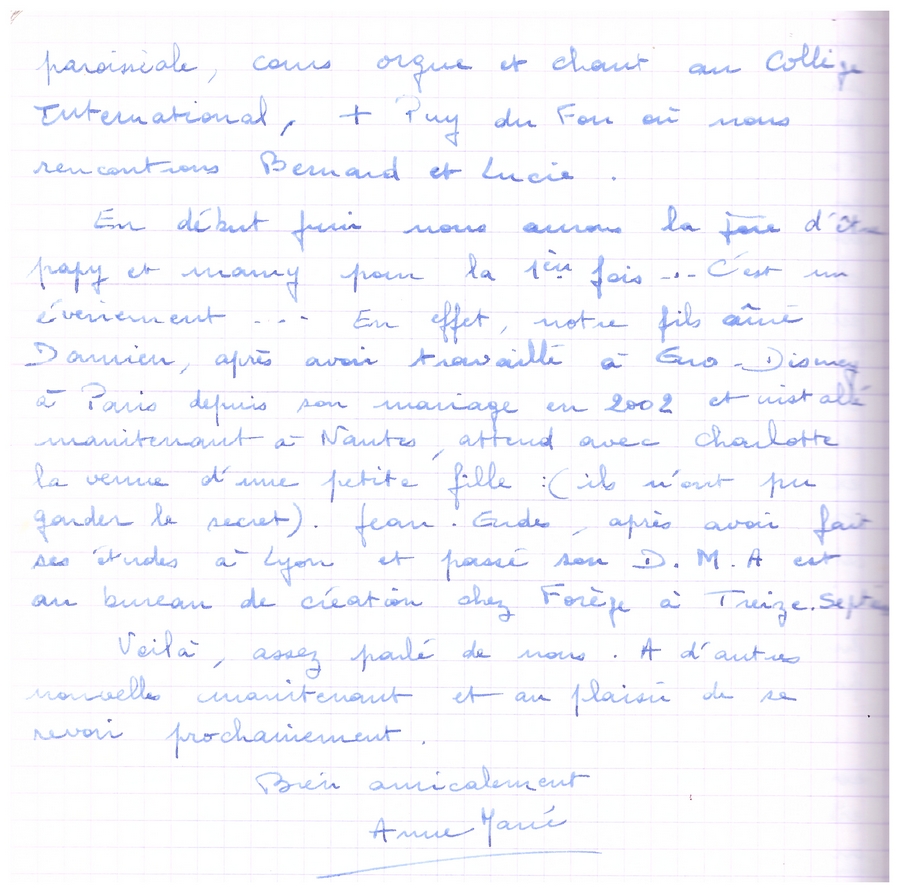 paroissiale, cours orgue et chant au Collège
International, + Puy du Fou où nous
rencontrons Bernard et Lucie.
En début juin nous aurons la joie d'être
papy et mamy pour la 1ère fois ... C'est un
événement ... En effet, notre fils aîné
Damien, après avoir travaillé à Euro-Disney
à Paris depuis son mariage en 2002 et installé
maintenant à Nantes, attend avec Charlotte
la venue d'une petite fille :( ils n'ont pu
garder le secret). Jean. Eudes, après avoir fait
ses études à Lyon et passé son D.M.A est
au bureau de création chez Forège à Treize.Septiers
Voilà, assez parlé de nous. A d'autres
nouvelles maintenant et au plaisir de se
revoir prochainement.
Bien amicalement
Anne Marie